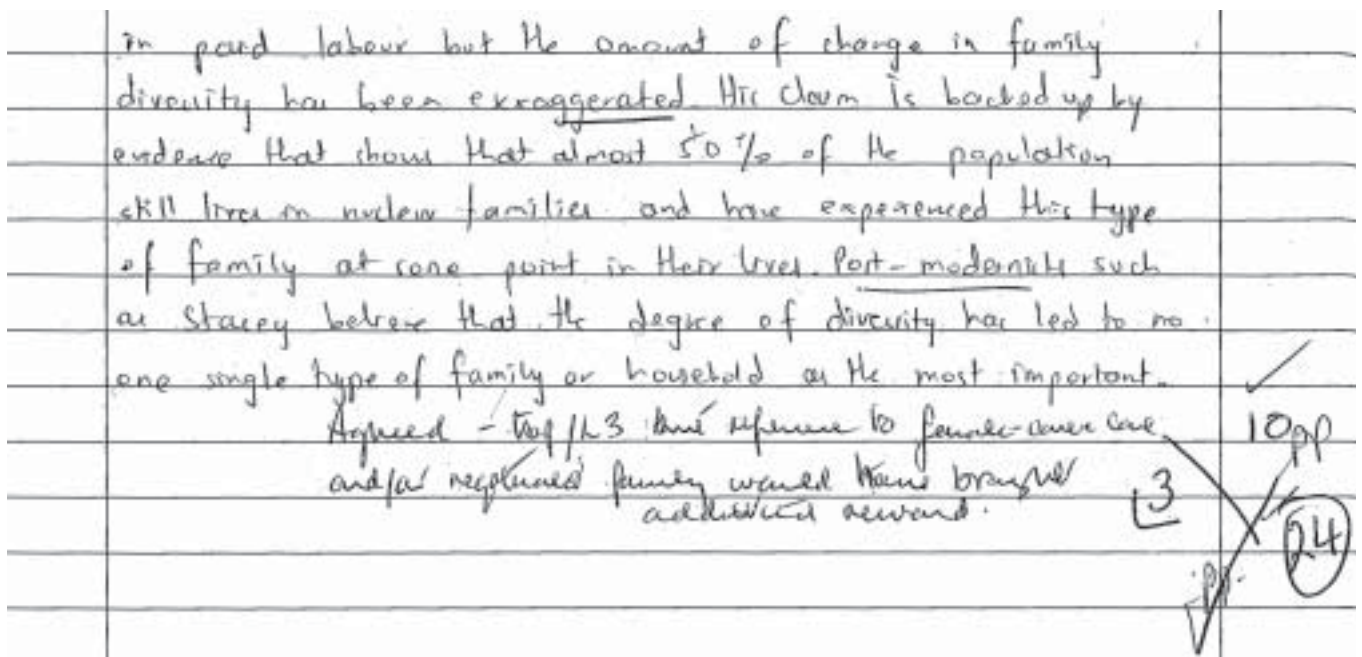 in paid labour but the amount of change in family
diversity has been exxaggerated. His claim is backed up by
evidence that shows that almost 50% of the population
still lives in nuclear families and have experienced this type
of family at some point in their lives. Post-modernists such
as Stacey believe that the degree of diversity has led to no
one single type of family or household as the most important.
Agreed - top/L3 reference to female-carer core
and/or negotiated family would have brought
additional reward.
10pp
L3
24